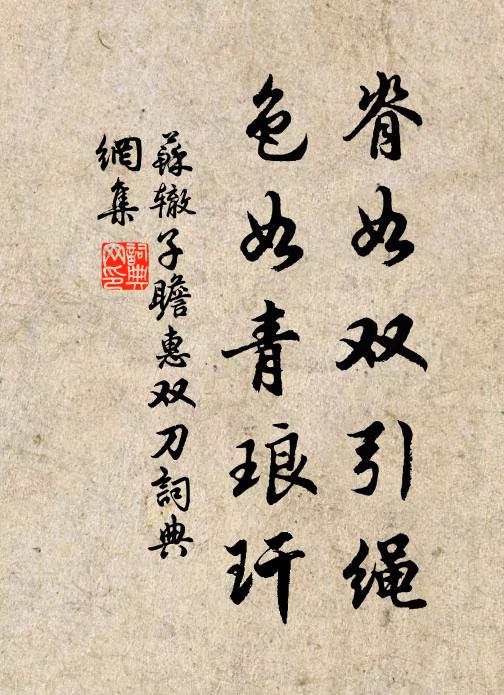 脊如双引绳
色如青琅玕
蘇辙子瞻惠双刀詞典
網集
詞典
网印